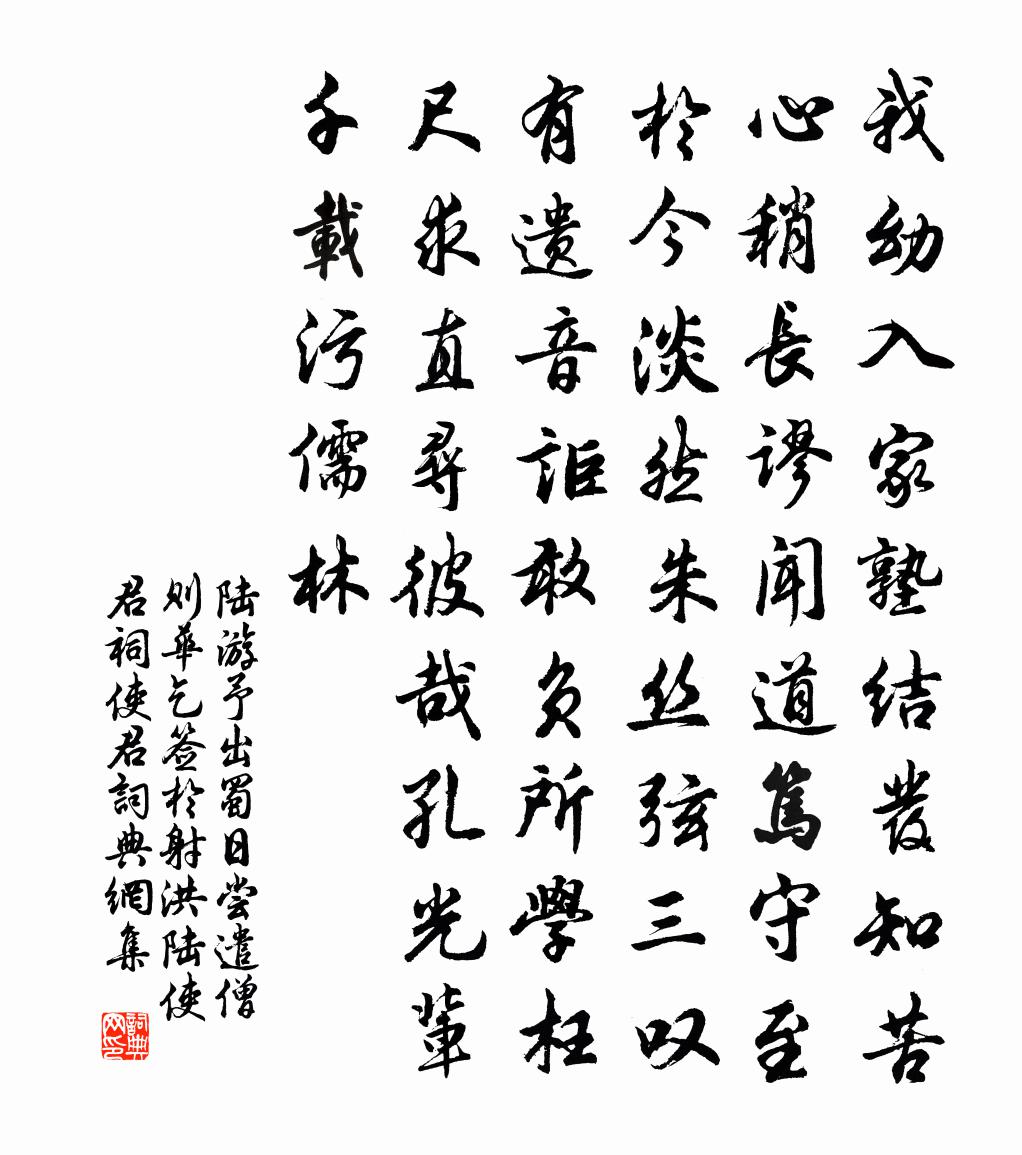 我幼入家塾结發知苦
心稍長謬闻道篤守至
於今淡然朱丝弦三叹
有遗音詎敢负所學枉
尺求直尋彼哉孔光輩
千載污儒林
陆游予出蜀日尝遣僧
则华乞签於射洪陆使
君祠使君詞典網集
詞典网印